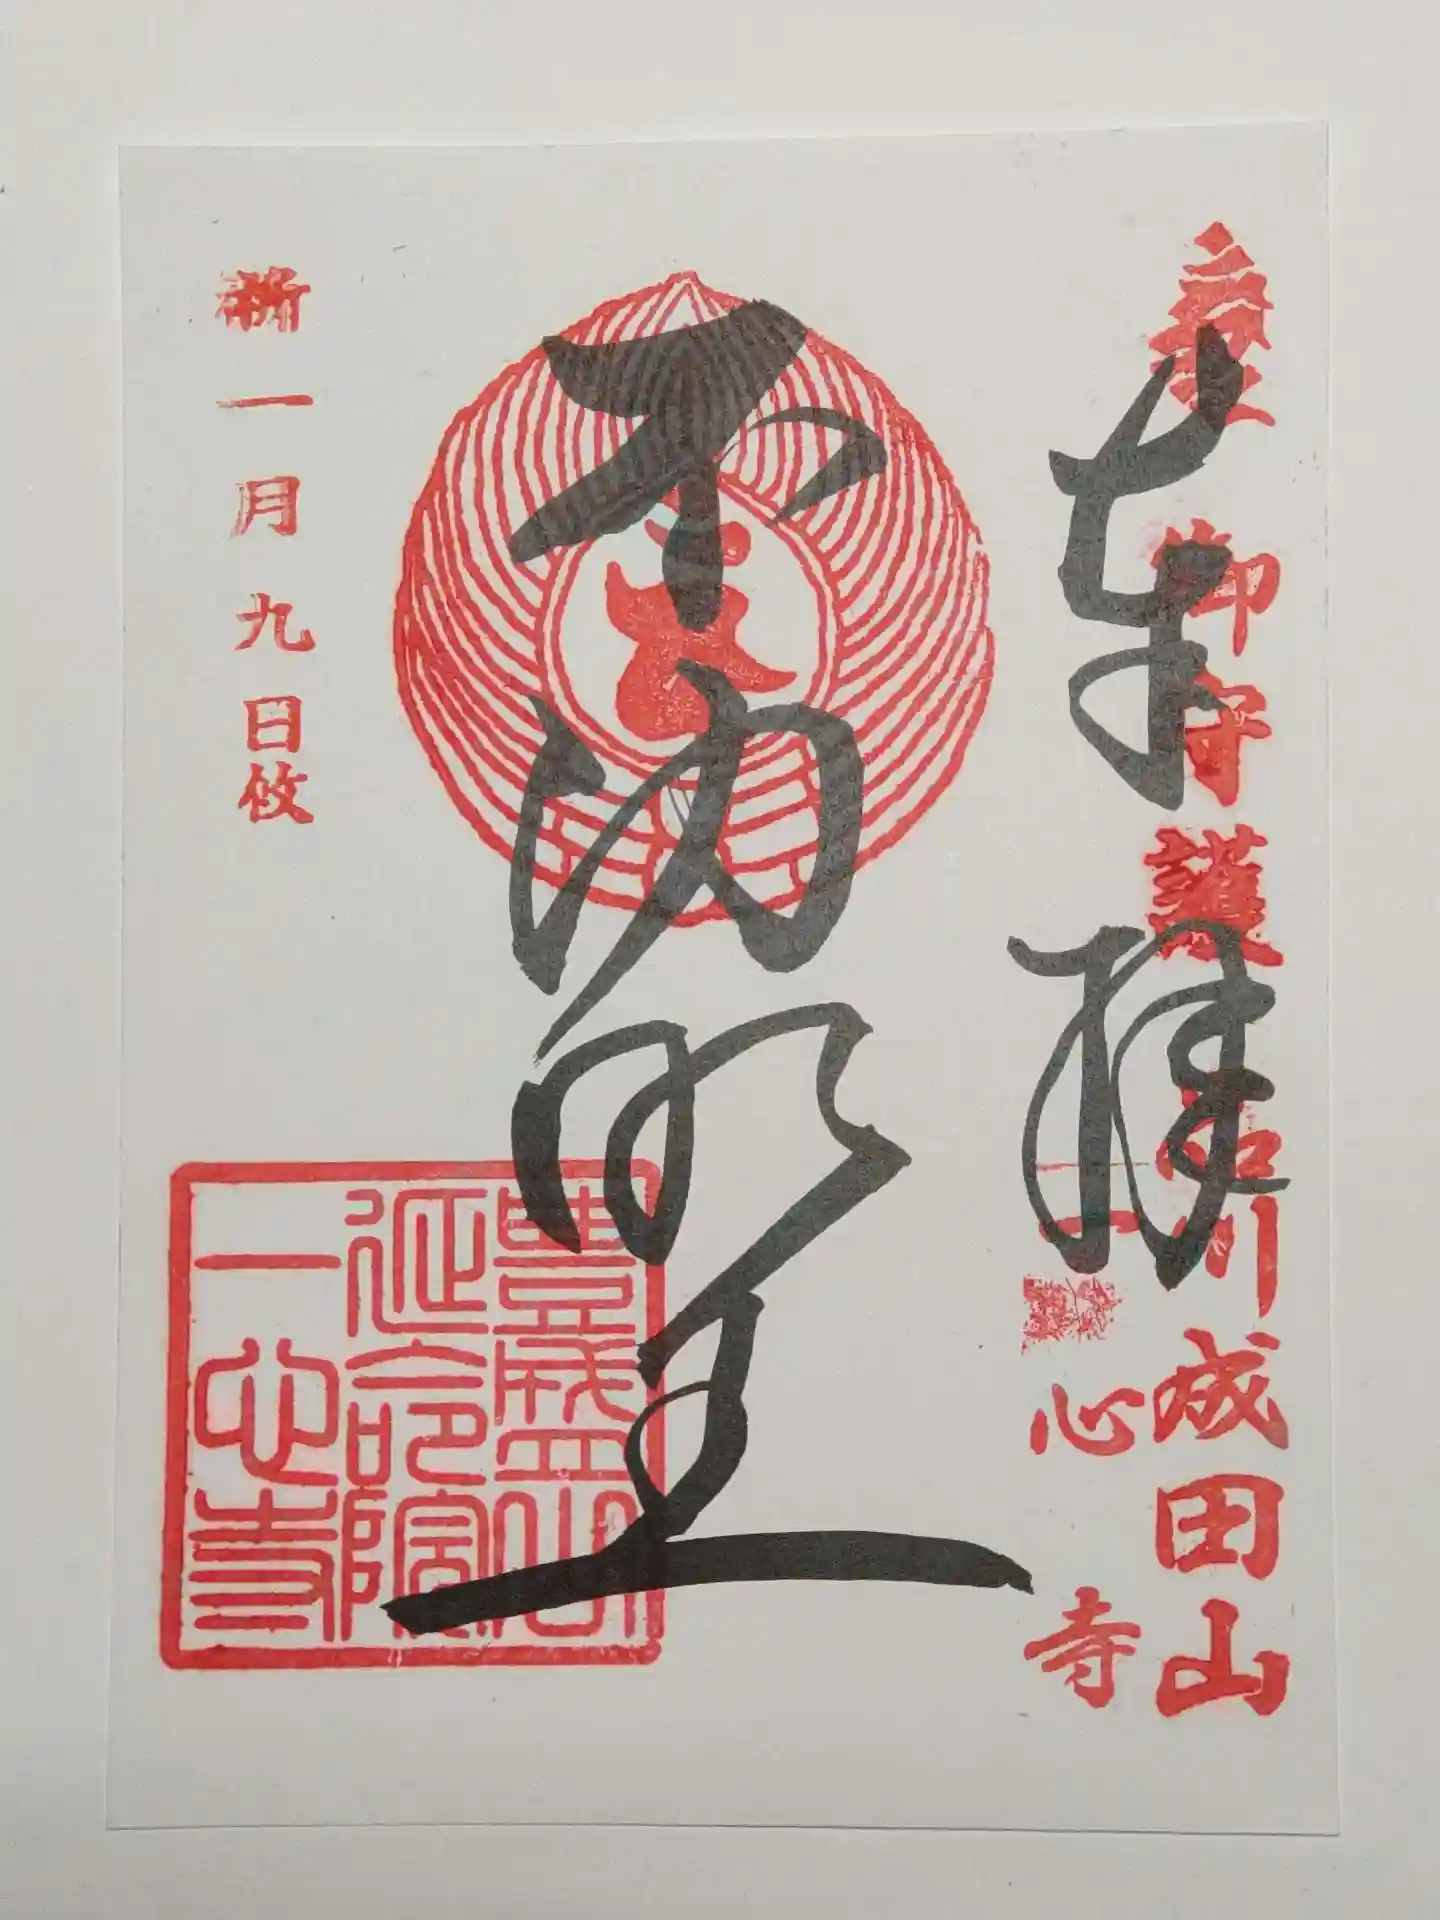 奉拝
御守護
品川成田山
一心寺
不動明王
豊盛山
延命院
一心寺
一月九日